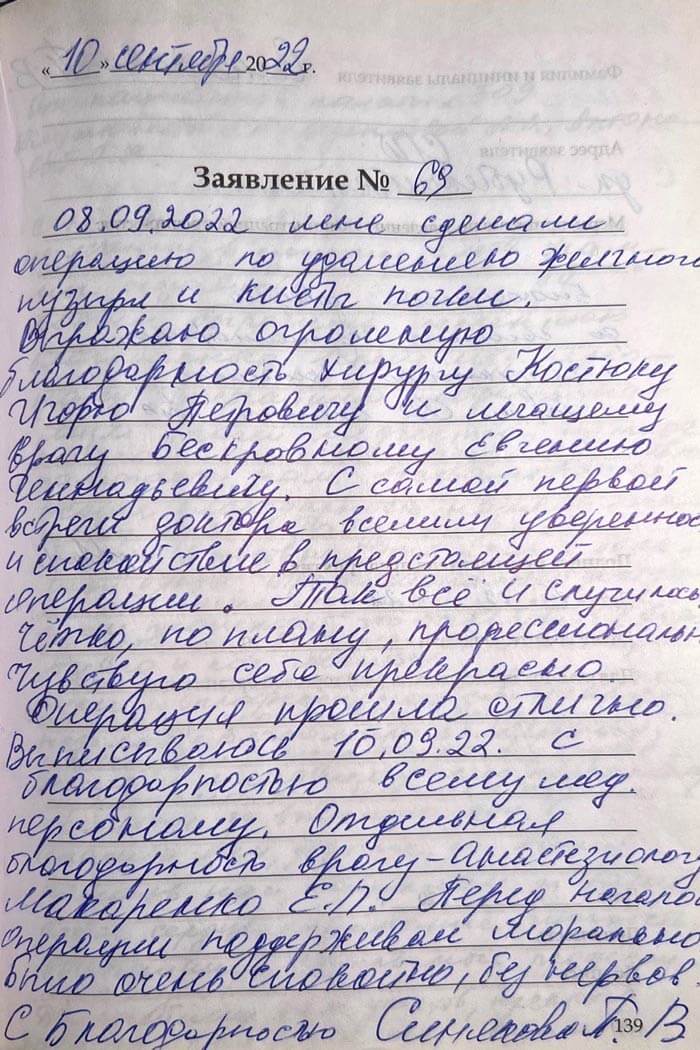 « 10 » сентября 2022 г.
Фамилия и инициалы заявителя
Адрес заявителя
Заявление № 69
08.09.2022 мне сделали
операцию по удалению желчного
пузыря и кисты почки.
Выражаю огромную
благодарность хирургу Костюку
Игорю Петровичу и лечащему
врагу Бескровному Евгению
Геннадьевичу. С самой первой
встречи доктора вселили уверенност
и спокойствие в предстоящей
операции. Так всё и случилось
Чётко, по плану, профессиональн
Чувствую себя прекрасно
Операция прошла отлично.
Выписываюсь 10.09.22. с
благодарностью всему мед.
персоналу. Отдельная
благодарность врачу-анастезиологу
Макаренко Е.П. Перед началом
операции поддерживал морально
было очень спокойно, без нервов.
С Благодарностью Синякова Т. В
139